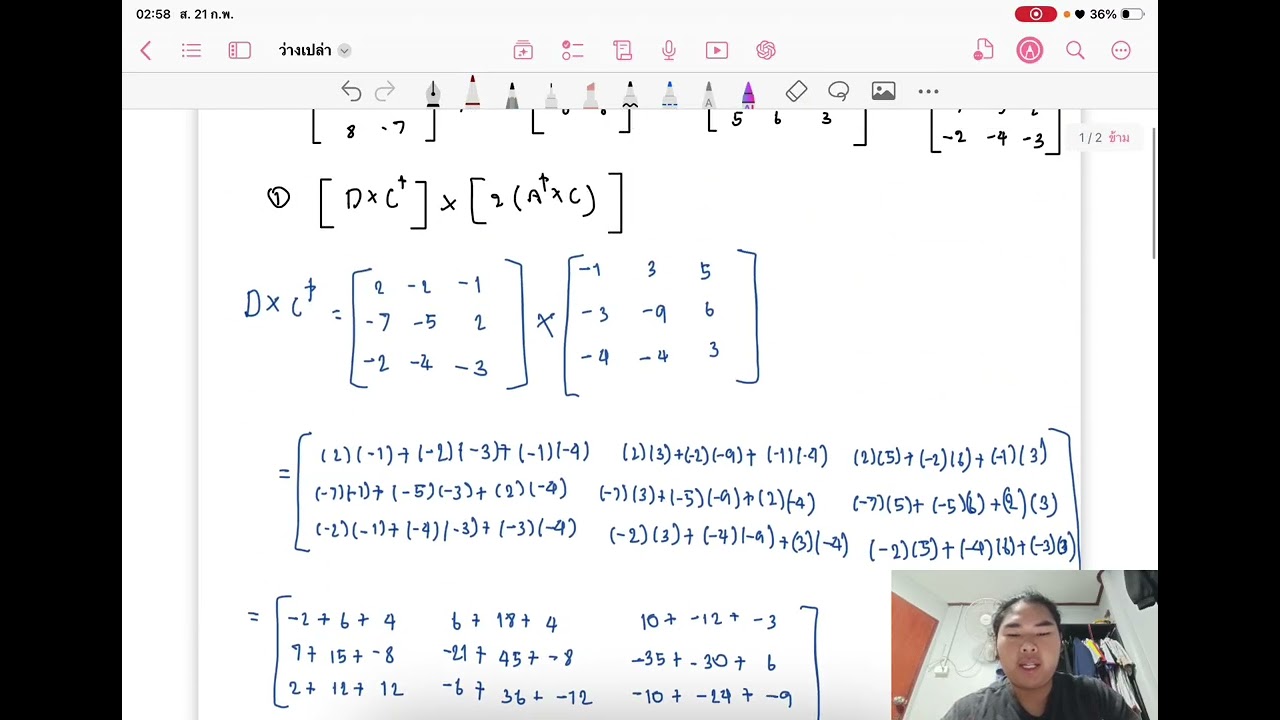 02:58 ส. 21 ก.พ. 36%
ว่างเปล่า
1 / 2 ข้าม
8 -7
5 6 3
-2 -4 -3
① [D×C^t] × [2(A^t×C)]
D×C^t = [2 -2 -1] × [-1 3 5]
[-7 -5 2] [-3 -9 6]
[-2 -4 -3] [-4 -4 3]
= [(2)(-1)+(-2)(-3)+(-1)(-4) (2)(3)+(-2)(-9)+(-1)(-4) (2)(5)+(-2)(6)+(-1)(3)]
[(-7)(-1)+(-5)(-3)+(2)(-4) (-7)(3)+(-5)(-9)+(2)(-4) (-7)(5)+(-5)(6)+(2)(3)]
[(-2)(-1)+(-4)(-3)+(-3)(-4) (-2)(3)+(-4)(-9)+(3)(-4) (-2)(5)+(-4)(6)+(-3)(3)]
= [-2+6+4 6+18+4 10+-12+-3]
[7+15+-8 -21+45+-8 -35+-30+6]
[2+12+12 -6+36+-12 -10+-24+-9]